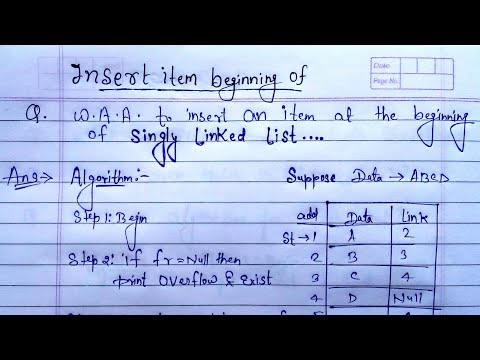 Insert item beginning of
Date
Page No.
Q. W.A.A. to insert an item at the beginning
of Singly Linked List....
Ans→ Algorithm:- Suppose Data → ABCD
Step 1: Begin
add Data Link
St → 1 A 2
Step 2: If fr = Null then
2 B 3
print Overflow & Exist
3 C 4
4 D Null